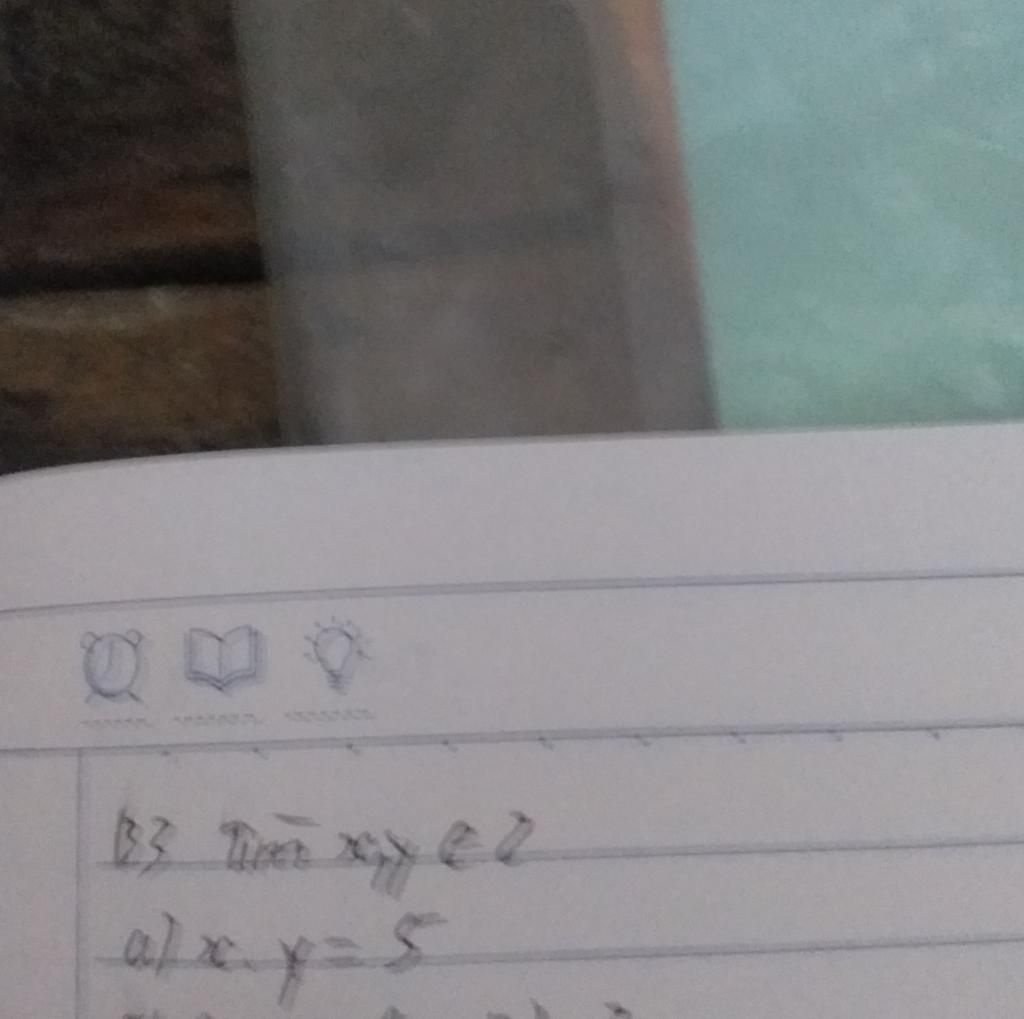 B3 Tìm x,y ∈ Z
a) x.y = 5